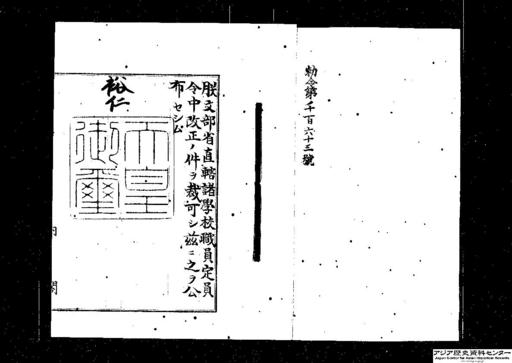 勅令第千百六十三號
朕文部省直轄諸學校職員定員
令中改正ノ件ヲ裁可シ茲ニ之ヲ公
布セシム
裕仁
天皇
御璽
内閣
アジア歴史資料センター
Japan Center for Asian Historical Records